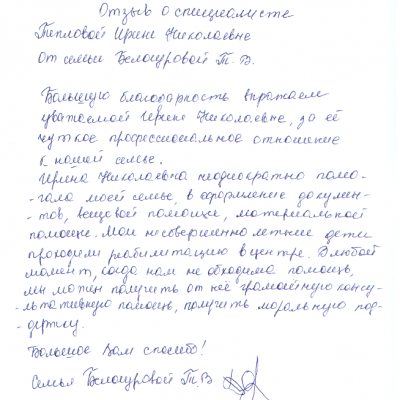 Отзыв о специалисте
Тепловой Ирине Николаевне
От семьи Белоуровой Т.В.
Большую благодарность выражаем
уважаемой Ирине Николаевне, за её
чуткое профессиональное отношение
к нашей семье.
Ирина Николаевна неоднократно помо-
-гала моей семье, в оформление докумен-
-тов, вещевой помощи, материальной
помощи. Мои несовершеннолетние дети
проходили реабилитацию в центре. В любой
момент, когда нам необходима помощь,
мы можем получить от неё грамотную консу-
-льтативную помощь, получить моральную под-
-держку.
Большое Вам спасибо!
Семья Белоуровой Т.В